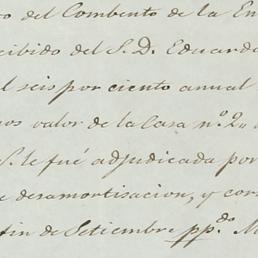 del Combento de la En
cibido del S. D. Eduardo
l seis por ciento anual
os valor de la Casa nº 2..
S. le fué adjudicada por
e desamortisacion, y cor
fin de Setiembre pp.do M